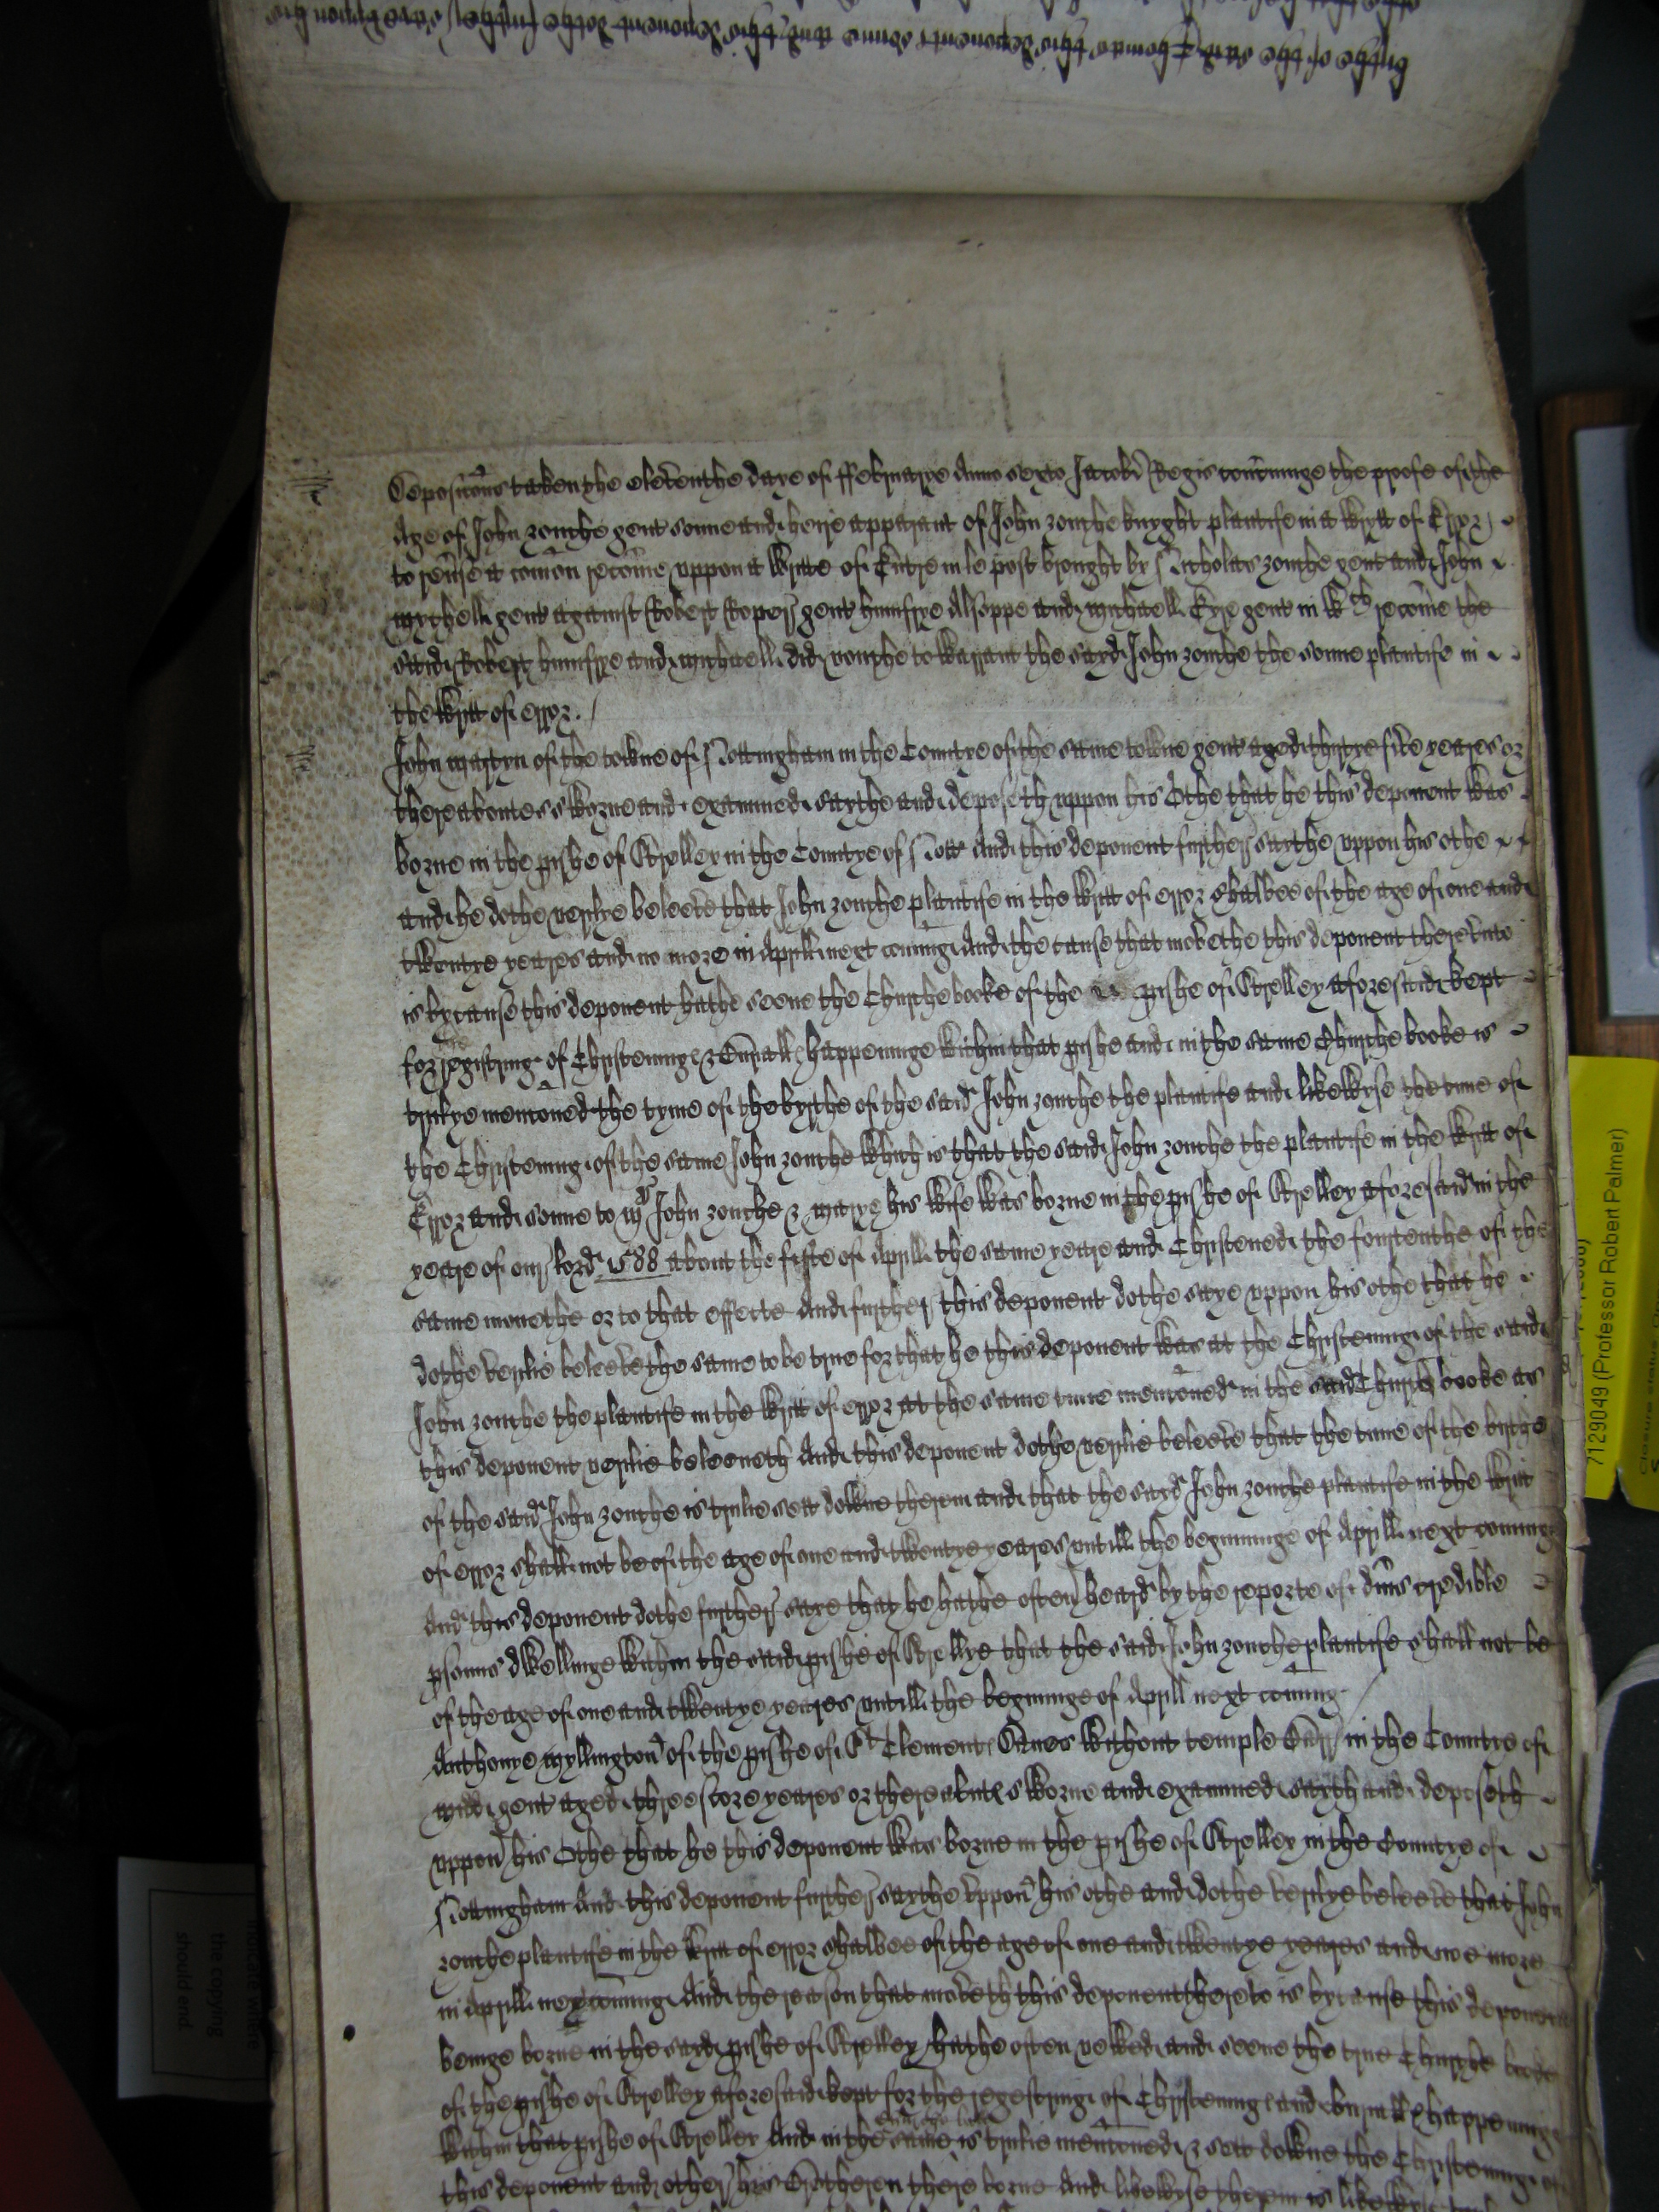 birthe of the said Thomas this deponents sonne and this deponent dothe further saye uppon his
Deposicons taken the eleventhe daye of ffebruarye Anno sexto Jacobi Regis concerninge the proofe of the
Age of John zouche gent sonne and heire apparant of John zouche knyght plantife in a Writt of Error
to reverse a comon recoverie uppon a Writte of Entre in le post brought by Nicholas zouche gent and John
mychell gent against Robert Roper gent humfrye Alsoppe and mychaell Eyre gent in Wch recoverie the
said Robert humfrye and mychaell did vouche to Warrant the sayd John zouche the sonne plantife in
the Writt of error./
John martyn of the towne of Nottingham in the Countye of the same towne gent aged thirtye five yeares or
thereaboutes sworne and examined saythe and deposeth uppon his Othe that he this deponent was
borne in the pishe of Strelley in the Countye of Nott And this deponent further saythe uppon his othe
and he dothe verylye beleeve that John zouche plantife in the Writt of error shalbee of the age of one and
twentye yeares and no more in Aprill next coming And the cause that movethe this deponent thereunto
is bycause this deponent hathe seene the Churche booke of the pishe of Strelley aforesaid kept
for registring of Christenings & Burialls happeninge within that pishe and in the same Churche booke is
trulye menconed the tyme of the byrthe of the said John zouche the plantife and likewyse the time of
the Christening of the same John zouche Which is that the said John zouche the plantife in the Writt of
Error and sonne to mr John zouche & marye his wife was borne in the pishe of Strelley aforesaid in the
yeare of our lord 1588 about the fifte of Aprill the same yeare and Christened the fourtenthe of the
same monethe or to that effecte And further this deponent dothe saye uppon his othe that he
dothe verilie beleeve the same to be true for that he this deponent was at the Christening of the said
John zouche the plantife in the Writt of error at the same time menconed in the said Churche booke as
this deponent verilie beleeveth And this deponent dothe verilie beleeve that the time of the birthe
of the said John zouche is trulie sett downe therein and that the said John zouche plantife in the Writt
of error shall not be of the age of one and twentye yeares untill the beginninge of Aprill next coming
And this deponent dothe further saye that he hathe often heard by the reporte of divers credible
psonns dwellinge within the said pishe of Strellye that the said John zouche plantife shall not be
of the age of one and twentye yeares untill the beginninge of Aprill next coming /
Anthonye myllington of the pishe of St Clement Danes Without temple Barr in the Countye of
midd gent aged threescore yeares or thereabouts sworne and examined sayth and deposeth
uppon his Othe that he this deponent was borne in the pishe of Strelley in the Countye of
Nottingham And this deponent further saythe uppon his othe and dothe verylye beleeve that John
zouche plantife in the Writt of error shalbee of the age of one and twentye yeares and noe more
in Aprill next coming And the reason that moveth this deponent thereto is bycause this deponent
beinge borne in the sayd pishe of Strelley hathe often and seene the true Churche booke
of the pishe of Strelley aforesaid kept for the regestring of Christenings and burialls happeninge
Within that pishe of Strelley And in the same is trulie menconed & sett downe the Christening of
this deponent and other his Bretheren there borne And likewyse therein is likewyse
7129049 (Professor Robert Palmer)
the copying
should end.